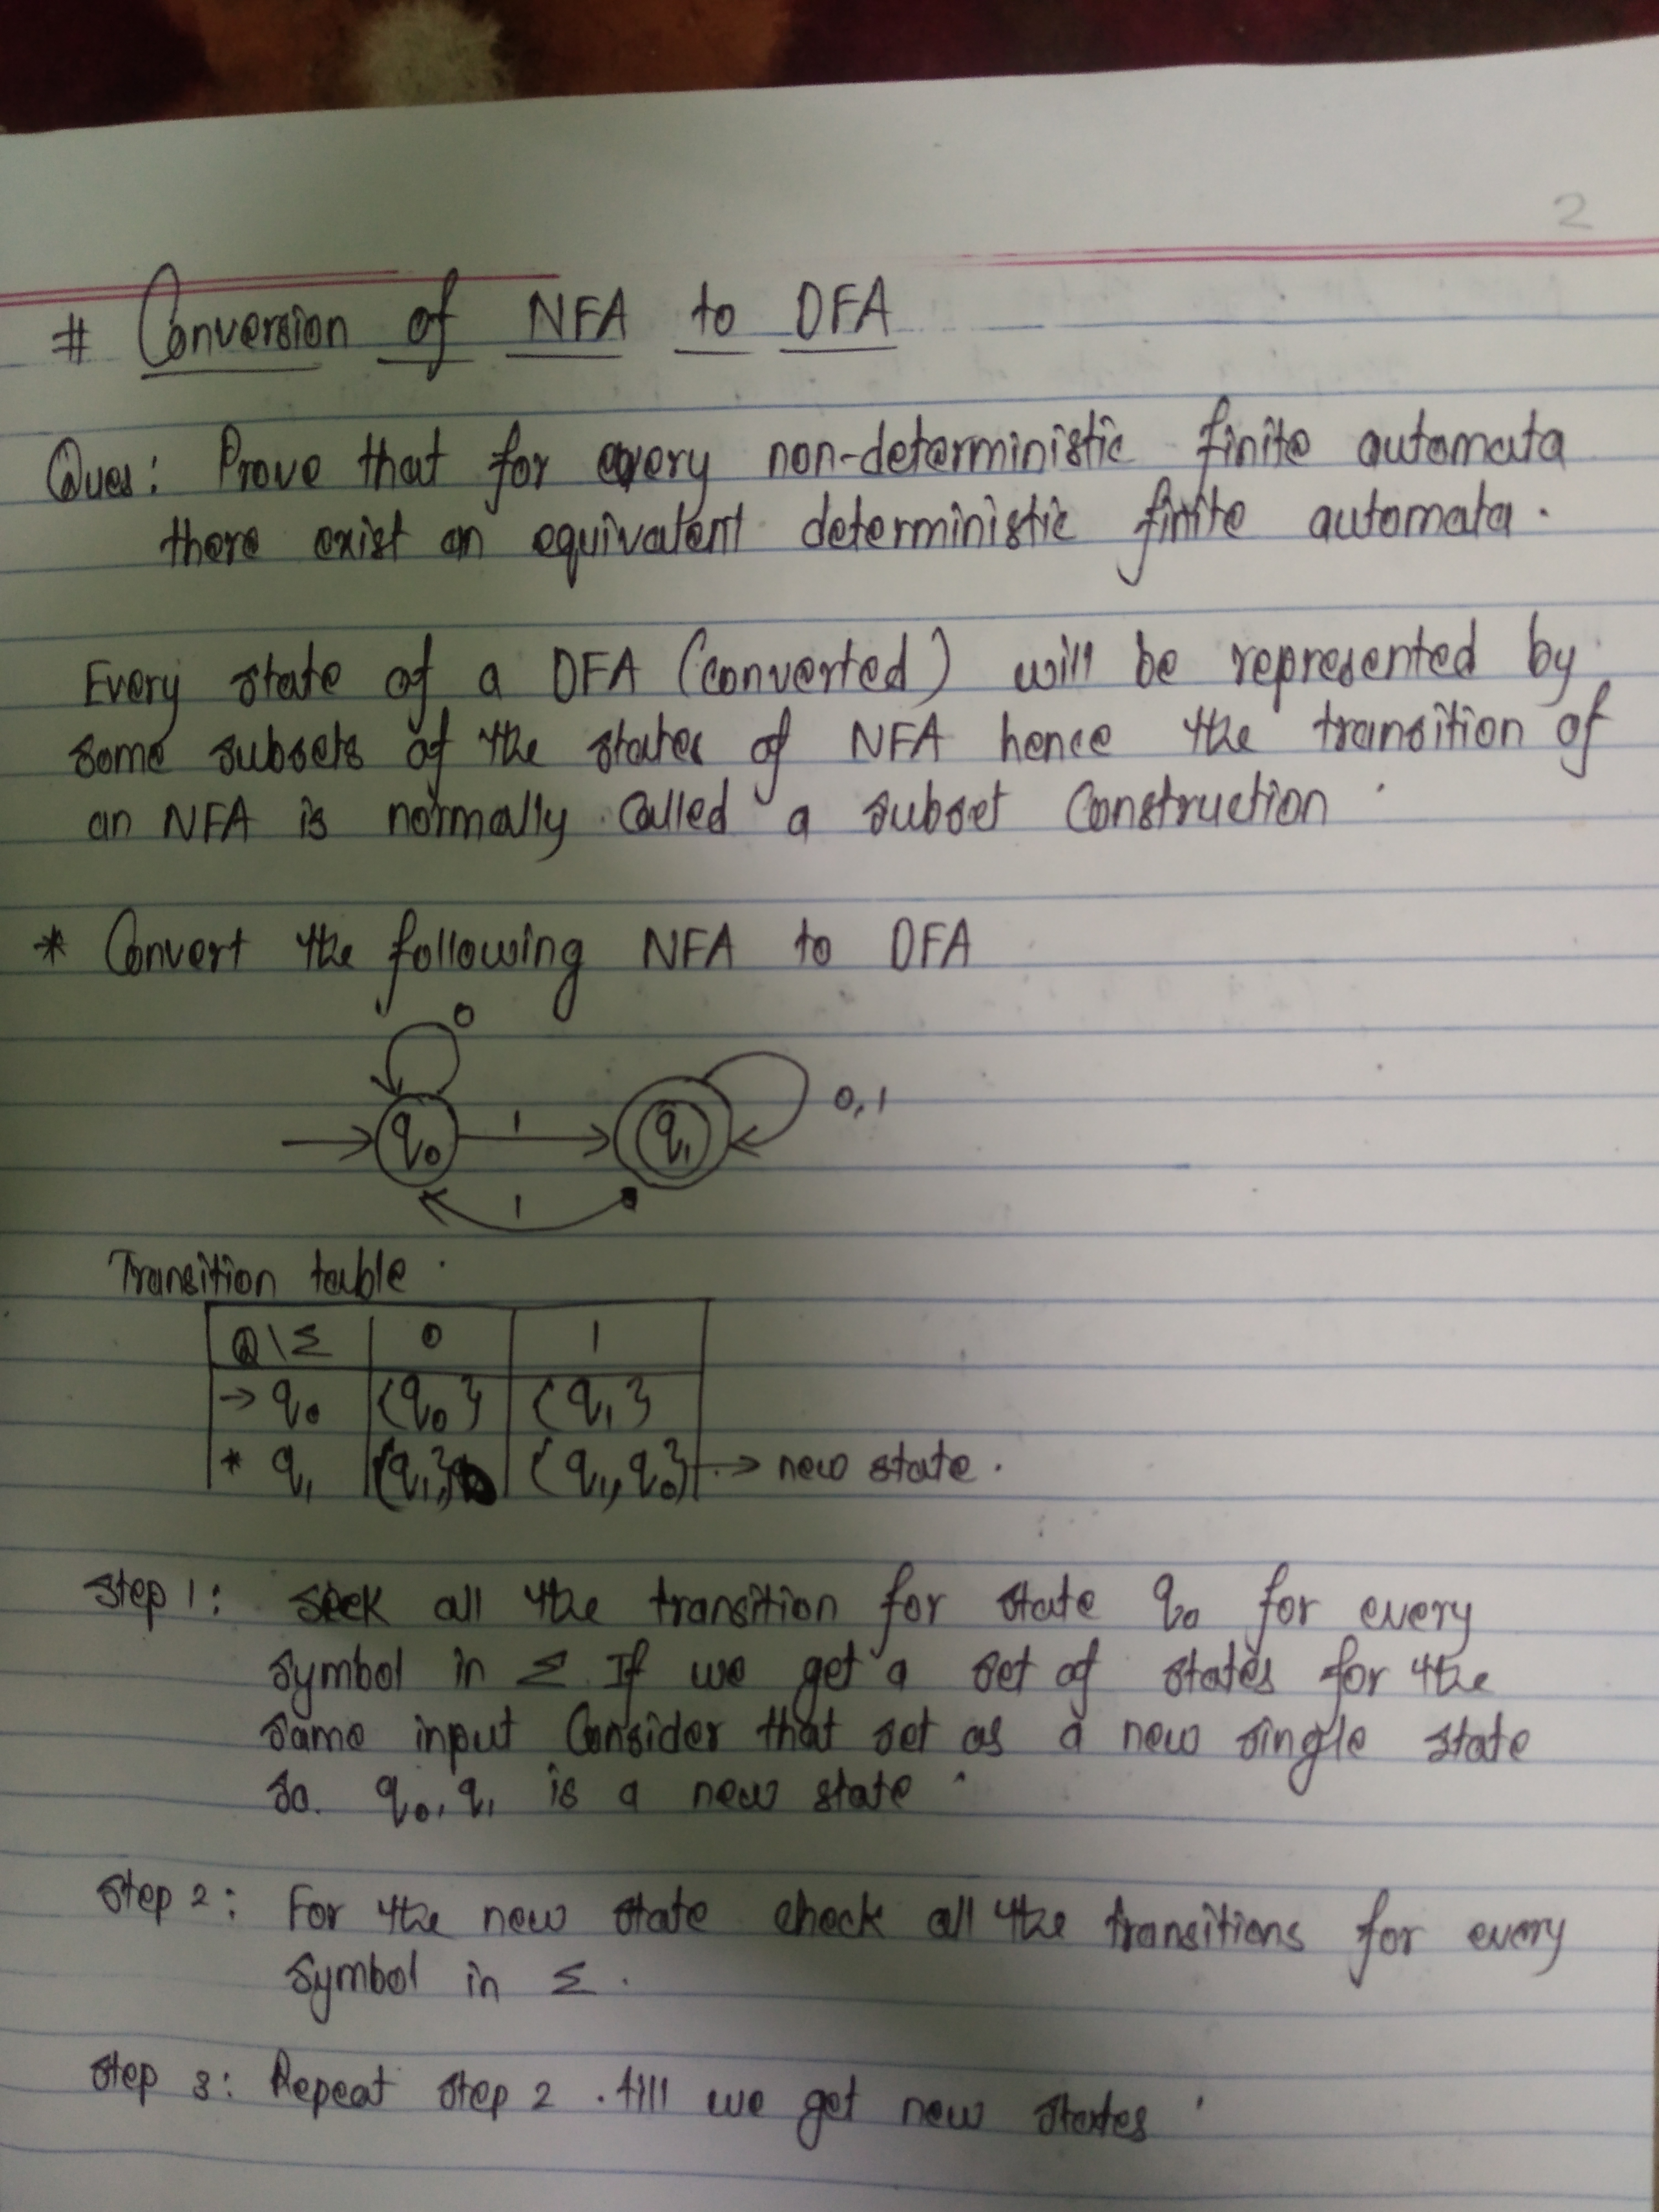 2
# Conversion of NFA to DFA
Ques: Prove that for every non-deterministic finite automata
there exist an equivalent deterministic finite automata.
Every state of a DFA (converted) will be represented by
some subsets of the states of NFA hence the transition of
an NFA is normally called a subset construction.
* Convert the following NFA to DFA
0
q₀ 1 q₁ 0,1
1
Transition table.
Q\Σ 0 1
→ q₀ {q₀} {q₁}
* q₁ {q₁} {q₁, q₀} → new state.
Step 1: Seek all the transition for state q₀ for every
symbol in Σ. If we get a set of states for the
same input Consider that set as a new single state
so. q₀, q₁ is a new state.
Step 2: For the new state check all the transitions for every
symbol in Σ.
Step 3: Repeat step 2. till we get new states.